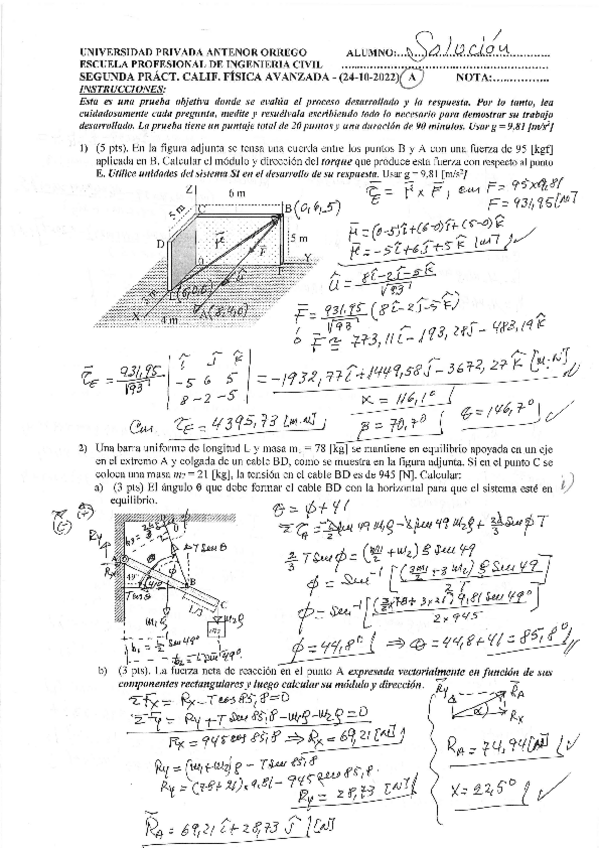 UNIVERSIDAD PRIVADA ANTENOR ORREGO ALUMNO: Solución
ESCUELA PROFESIONAL DE INGENIERIA CIVIL
SEGUNDA PRÁCT. CALIF. FÍSICA AVANZADA - (24-10-2022) A NOTA:
INSTRUCCIONES:
Esta es una prueba objetiva donde se evalúa el proceso desarrollado y la respuesta. Por lo tanto, lea
cuidadosamente cada pregunta, medite y resuévala escribiendo todo lo necesario para demostrar su trabajo
desarrollado. La prueba tiene un puntaje total de 20 puntos y una duración de 90 minutos. Usar g = 9.81 [m/s²]
1) (5 pts). En la figura adjunta se tensa una cuerda entre los puntos B y A con una fuerza de 95 [kgf]
aplicada en B. Calcular el módulo y dirección del torque que produce esta fuerza con respecto al punto
E. Utilice unidades del sistema SI en el desarrollo de su respuesta. Usar g = 9,81 [m/s²]
τ̄E = r̄ x F̄, con F = 95x9,81
F = 931,95 [N]
Z 6 m
5 m C B(0,6,5)
D 5 m
r̄ F̄ û
O F Y
X 4 m A(8,4,0)
r̄ = (0-5)î+(6-0)ĵ+(5-0)k̂
r̄ = -5î+6ĵ+5k̂ [m]
û = 8î-2ĵ-5k̂ / √93
F̄ = 931,95/√93 (8î-2ĵ-5k̂)
ó F̄ ≅ 773,11î-193,28ĵ-483,19k̂
τ̄E = 931,95/√93 | î ĵ k̂ | -5 6 5 | 8 -2 -5 | = -1932,77î+1449,58ĵ-3672,27k̂ [m.N]
α = 116,1°
Con τE = 4395,73 [m.N] β = 70,7° γ = 146,7°
2) Una barra uniforme de longitud L y masa m₁ = 78 [kg] se mantiene en equilibrio apoyada en un eje
en el extremo A y colgada de un cable BD, como se muestra en la figura adjunta. Si en el punto C se
coloca una masa m₂ = 21 [kg], la tensión en el cable BD es de 945 [N]. Calcular:
a) (3 pts) El ángulo θ que debe formar el cable BD con la horizontal para que el sistema esté en
equilibrio.
θ = φ + 41
2/3 T Sen φ = (m₁/2 + m₂) g Sen 49
φ = Sen⁻¹ [(3m₁/2 + 3m₂) g Sen 49 / 2T]
φ = Sen⁻¹ [(3/2x78 + 3x21) 9,81 Sen 49° / 2x945]
φ = 44,8° ⇒ θ = 44,8+41 = 85,8°
Ry T Sen θ
A D
Rx 49° φ
T cos θ B
C
L/3
m₁g
m₂g
b) (3 pts). La fuerza neta de reacción en el punto A expresada vectorialmente en función de sus
componentes rectangulares y luego calcular su módulo y dirección.
ΣFx = Rx - T cos 85,8 = 0
ΣFy = Ry + T Sen 85,8 - m₁g - m₂g = 0
Rx = 945 cos 85,8 ⇒ Rx = 69,21 [N]
Ry = (m₁+m₂) g - T Sen 85,8
Ry = (78+21) x 9,81 - 945 sen 85,8
Ry = 28,73 [N]
R̄A = 69,21 î + 28,73 ĵ [N]
R̄y R̄A
α R̄x
RA = 74,94 [N]
α = 22,5°